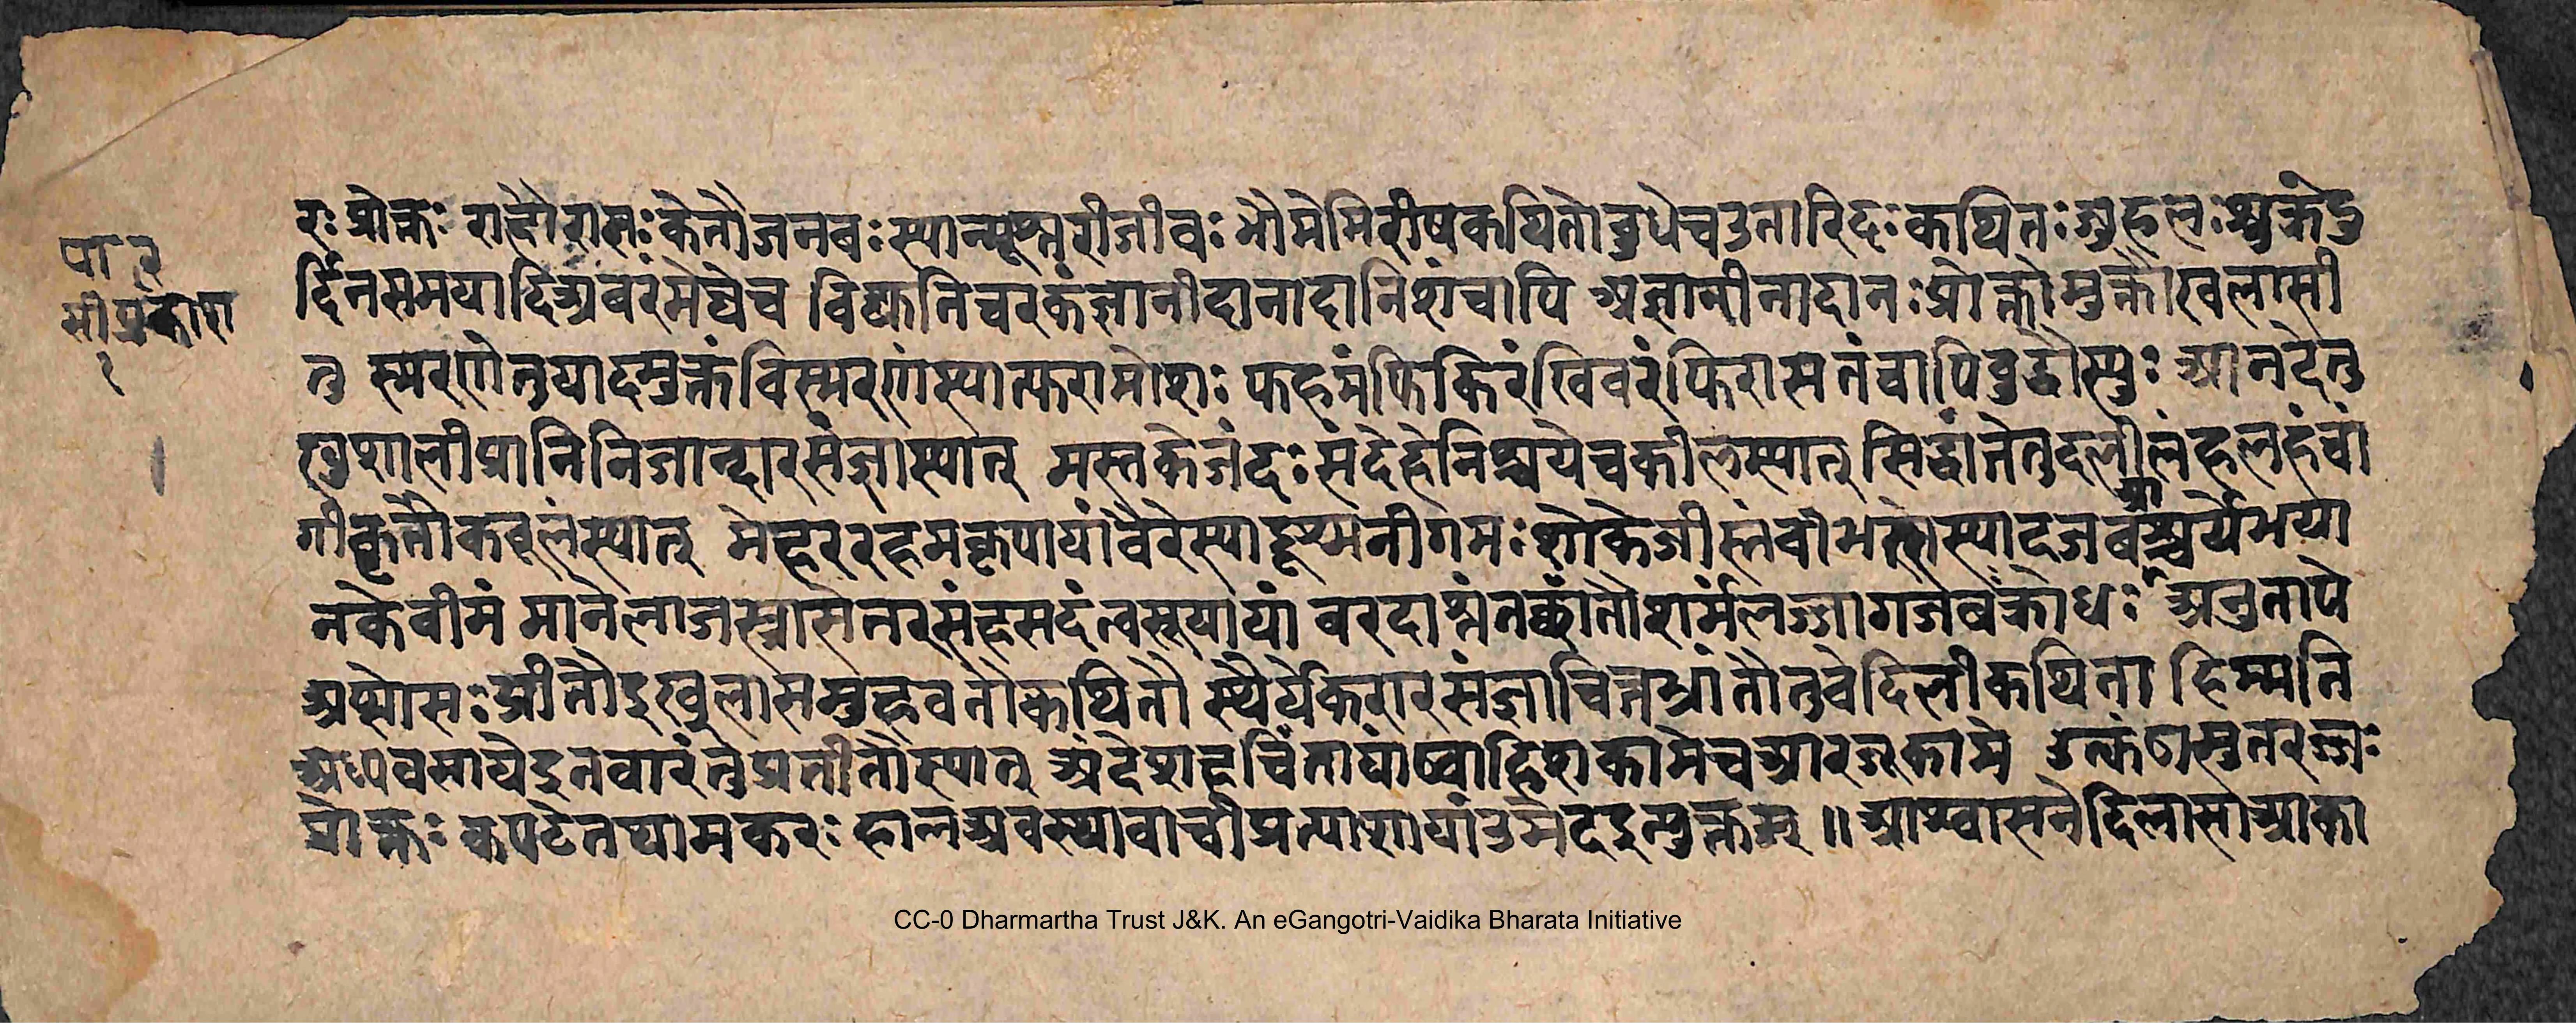 पार
सीप्रकाश
१
रः प्रोक्तः राहौ रासः केतौ जनबः स्यान्मूश्तरी जीवः भौमे मिरीषकथितो बुधे च उतारिदः कथितः जुहलः शुक्रेंदु
र्दिनसमयादि अबरंमेघेच विद्युतिचरकंज्ञानीदानादानिशंचापि अज्ञानीनादानः प्रोक्तोमुक्तौखलासी
तु स्मरणेतुयादमुक्तंविस्मरणंस्यात्फरामोशः फहमंफिकिरंखिवरंफिरासतंचापिबुद्धौस्युः आनंदेतु
खुशालीप्रानिनिजान्दारसंज्ञास्यात् मस्तकेजंदः संदेहेनिश्चयेचकीलस्यात् सिद्धांतेतुदलीलंहलहंबां
गीकृतौकबूलंस्यात् मेहररहमकृपायांवैरेस्याद्दूश्मनीगमः शोकेजीस्तंबीभत्सेस्यादजबआश्चर्येभया
नकेबीमं मानेलाजस्त्रासेतरसंहसदंत्वसूयायां बरदाश्तंतक्षांतौशर्मंलज्जागजबंक्रोधः अनुतापे
अफ्सोसः प्रीतौदुखुलासमुहवतौकथितौ स्थैर्येकरारसंज्ञाचित्तभ्रांतौतुबेदिलीकथिता हिम्मति
अध्यवसायेइतवारंतुप्रतीतौस्यात् अंदेशहचिंतायांष्वाहिशकामेचआरजूकामे उत्कंठासुतरज्जः
प्रोक्तः कपटेतथामकरः हालअवस्थावाचीप्रत्याशायांउमेदइत्युक्तम् ॥ आश्वासनेदिलासाआका
CC-0 Dharmartha Trust J&K. An eGangotri-Vaidika Bharata Initiative